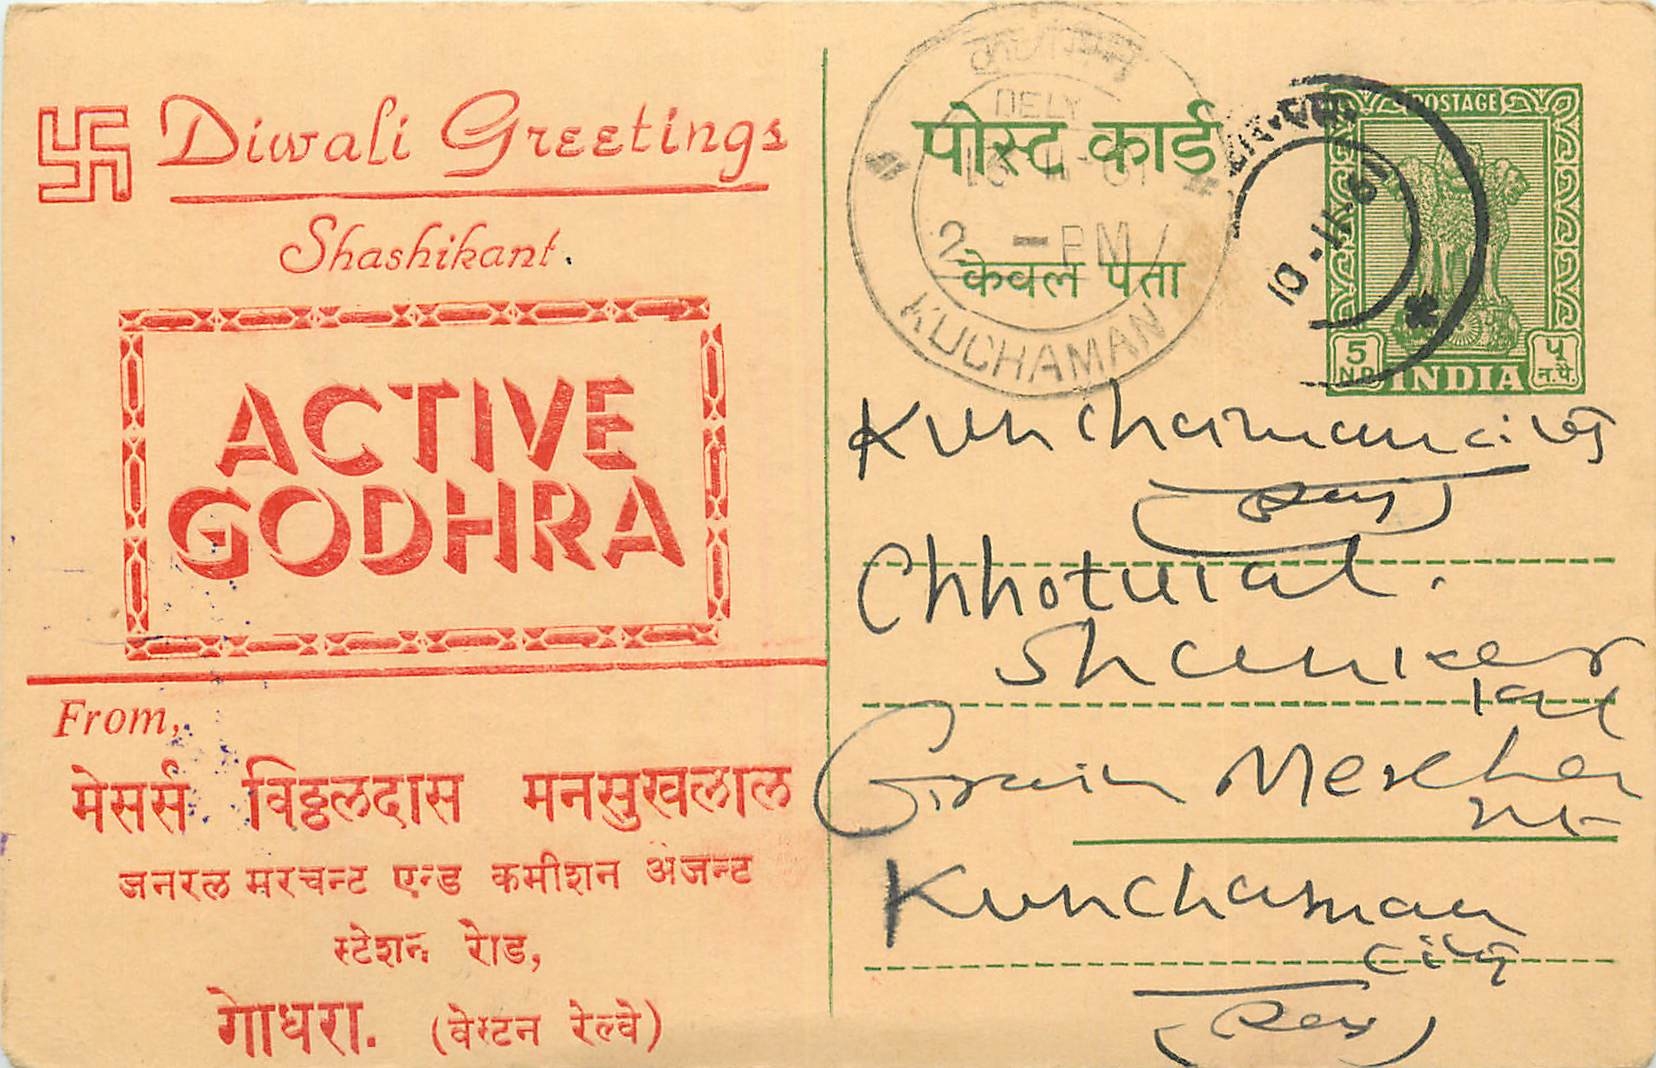 Diwali Greetings
Shashikant.
ACTIVE
GODHRA
From,
मेसर्स विठ्ठलदास मनसुखलाल
जनरल मरचन्ट एन्ड कमीशन अेजन्ट
स्टेशन रोड,
गोधरा. (वेस्टन रेल्वे)
पोस्ट कार्ड
केवल पता
DELY
2 - PM
KUCHAMAN
10-11-61
POSTAGE
5 N.P. INDIA ५ न.पै.
Kunchaman city
(Raj)
Chhotulal.
Shanker
lal
Grain Merchant
Kunchaman
city
(Raj)